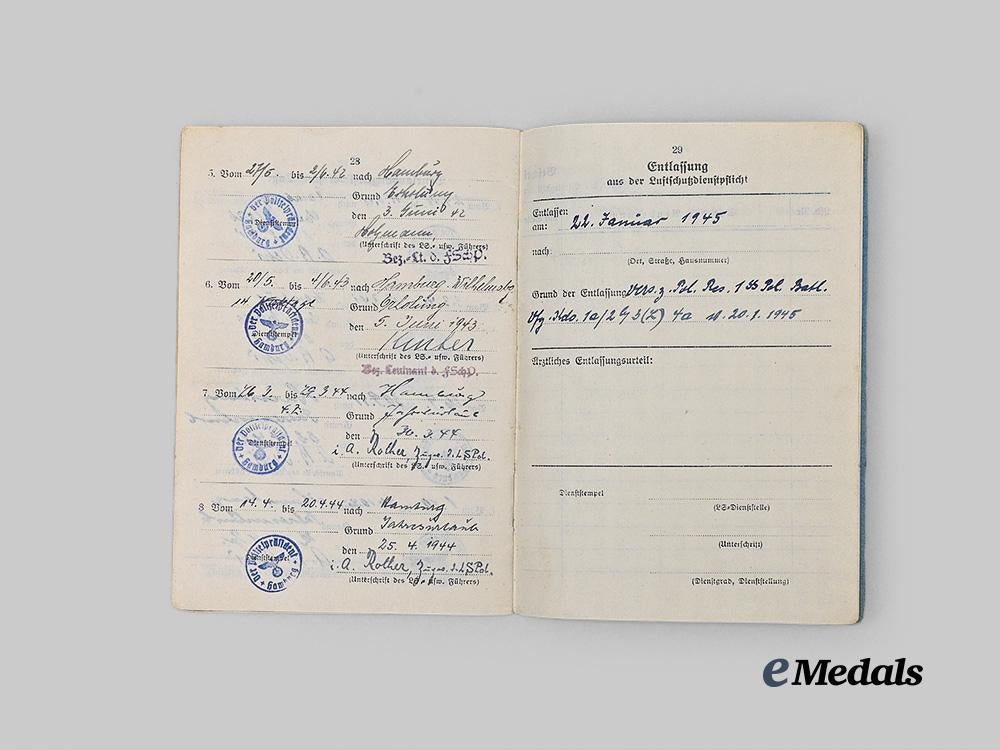 28
5. Vom 27/5. bis 2/6.42 nach Hamburg
Grund Erholung
den 3. Juni 42
Der Polizeipräsident Hamburg
Dienststempel
(Unterschrift des LS- usw. Führers)
Bez.-Lt. d. FSchP.
6. Vom 20/5. bis 4/6.43 nach Hamburg-Wilhelmsbg
14
Grund Erholung
den 5. Juni 1943
Der Polizeipräsident Hamburg
Dienststempel
(Unterschrift des LS- usw. Führers)
Bez. Leutnant d. FSchP.
7 Vom 26.3. bis 29.3.44 nach Hamburg
Grund Jahresurlaub
den 30.3.44
Der Polizeipräsident Hamburg
Dienststempel
i.A. Rother, Zugw. d. LSPol.
(Unterschrift des LS- usw. Führers)
8 Vom 14.4. bis 20.4.44 nach Hamburg
Grund Jahresurlaub
den 25.4.1944
Der Polizeipräsident Hamburg
Dienststempel
i.A. Rother, Zugw. d. LSPol.
(Unterschrift des LS- usw. Führers)
29
Entlassung
aus der Luftschutzdienstpflicht
Entlassen
am: 22. Januar 1945
nach:
(Ort, Straße, Hausnummer)
Grund der Entlassung Vers. z. Pol. Res. 1 SS Pol. Batl.
Vfg. Kdo. 1a/2 3(L) 4a v. 20.1.1945
Ärztliches Entlassungsurteil:
Dienststempel
(LS-Dienststelle)
(Unterschrift)
(Dienstgrad, Dienststellung)
eMedals